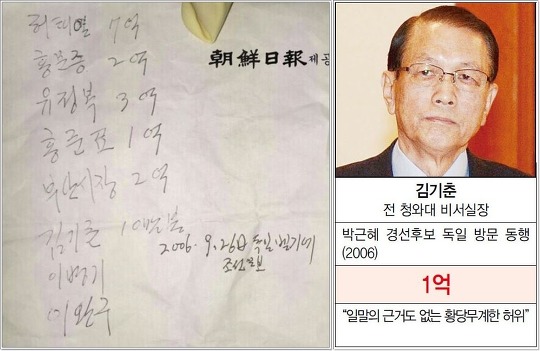 허태열 7억
홍문종 2억
유정복 3억
홍준표 1억
부산시장 2억
김기춘 10만불
2006. 9.26日 독일 벨기에
조선일보
이병기
이완구
朝鮮日報 제공
김기춘
전 청와대 비서실장
박근혜 경선후보 독일 방문 동행
(2006)
1억
“일말의 근거도 없는 황당무계한 허위”